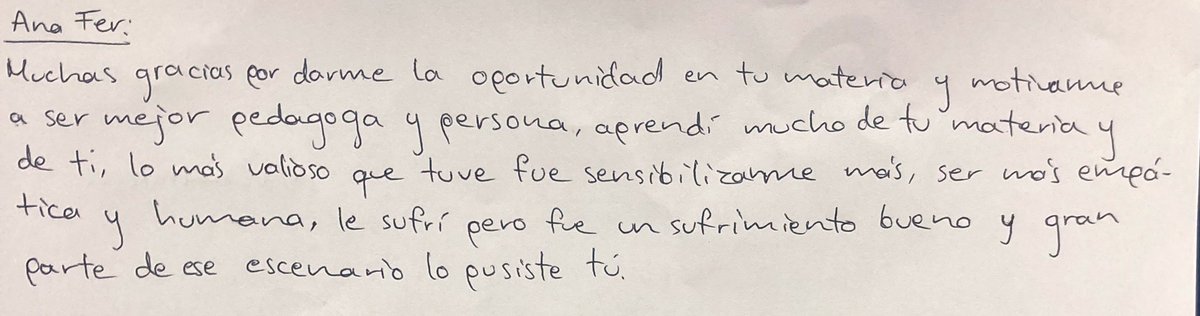 Ana Fer:
Muchas gracias por darme la oportunidad en tu materia y motivarme
a ser mejor pedagoga y persona, aprendí mucho de tu materia y
de ti, lo más valioso que tuve fue sensibilizarme más, ser más empá-
tica y humana, le sufrí pero fue un sufrimiento bueno y gran
parte de ese escenario lo pusiste tú.